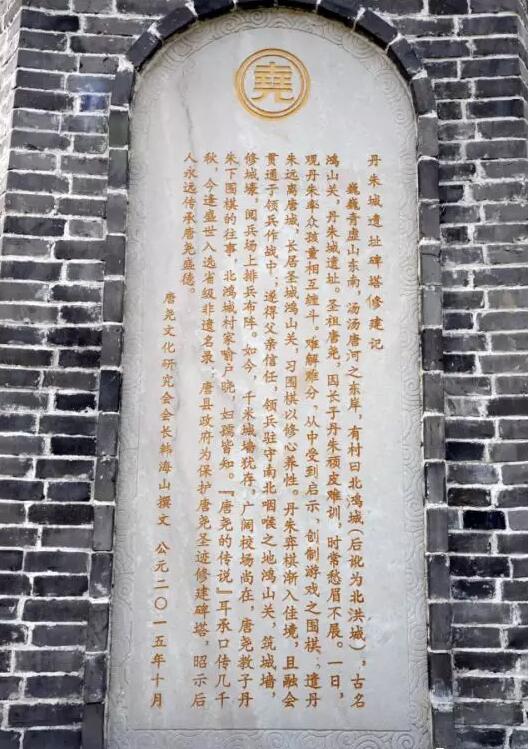 堯
丹朱城遗址碑塔修建记
巍巍青虚山东南，汤汤唐河之东岸，有村曰北鸿城（后讹为北洪城），古名
鸿山关，丹朱城遗址。圣祖唐尧，因长子丹朱顽皮难训，时常愁眉不展。一日，
观丹朱率众孩童相互缠斗。难解难分，从中受到启示，创制游戏之围棋，遣丹
朱远离唐城，长居圣城鸿山关，习围棋以修心养性。丹朱弈棋渐入佳境，且融会
贯通于领兵作战中；遂得父亲信任，领兵驻守南北咽喉之地鸿山关，筑城墙，
修城壕，阅兵场上排兵布阵。如今，千米城墙犹存，广阔校场尚在，唐尧教子丹
朱下围棋的往事，北鸿城村家喻户晓，妇孺皆知。『唐尧的传说』耳承口传几千
秋，今逢盛世入选省级非遗名录，唐县政府为保护唐尧圣迹修建碑塔，昭示后
人永远传承唐尧盛德。
唐尧文化研究会会长韩海山撰文 公元二〇一五年十月